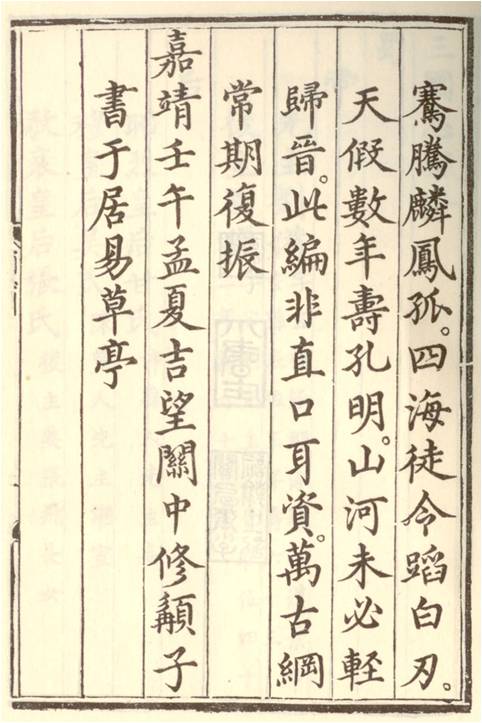 騫騰麟鳳孤。四海徒令蹈白刃。
天假數年壽孔明。山河未必輕
歸晉。此編非直口耳資。萬古綱
常期復振
嘉靖壬午孟夏吉望關中修顢子
書于居易草亭